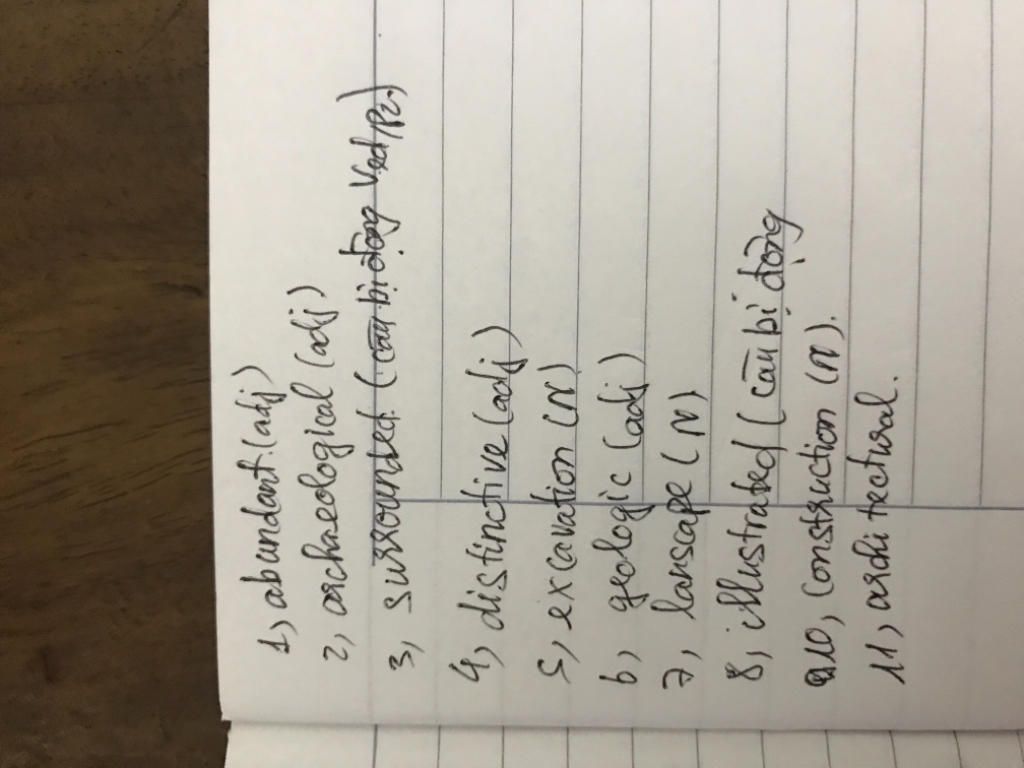 1, abundant. (adj)
2, archaeological (adj)
3, surrounded. (câu bị động Ved/P2.)
4, distinctive (adj)
5, excavation (N)
6, geologic (adj)
7, lanscape (N)
8, illustrated (câu bị động
10, construction (n).
11, architectural.